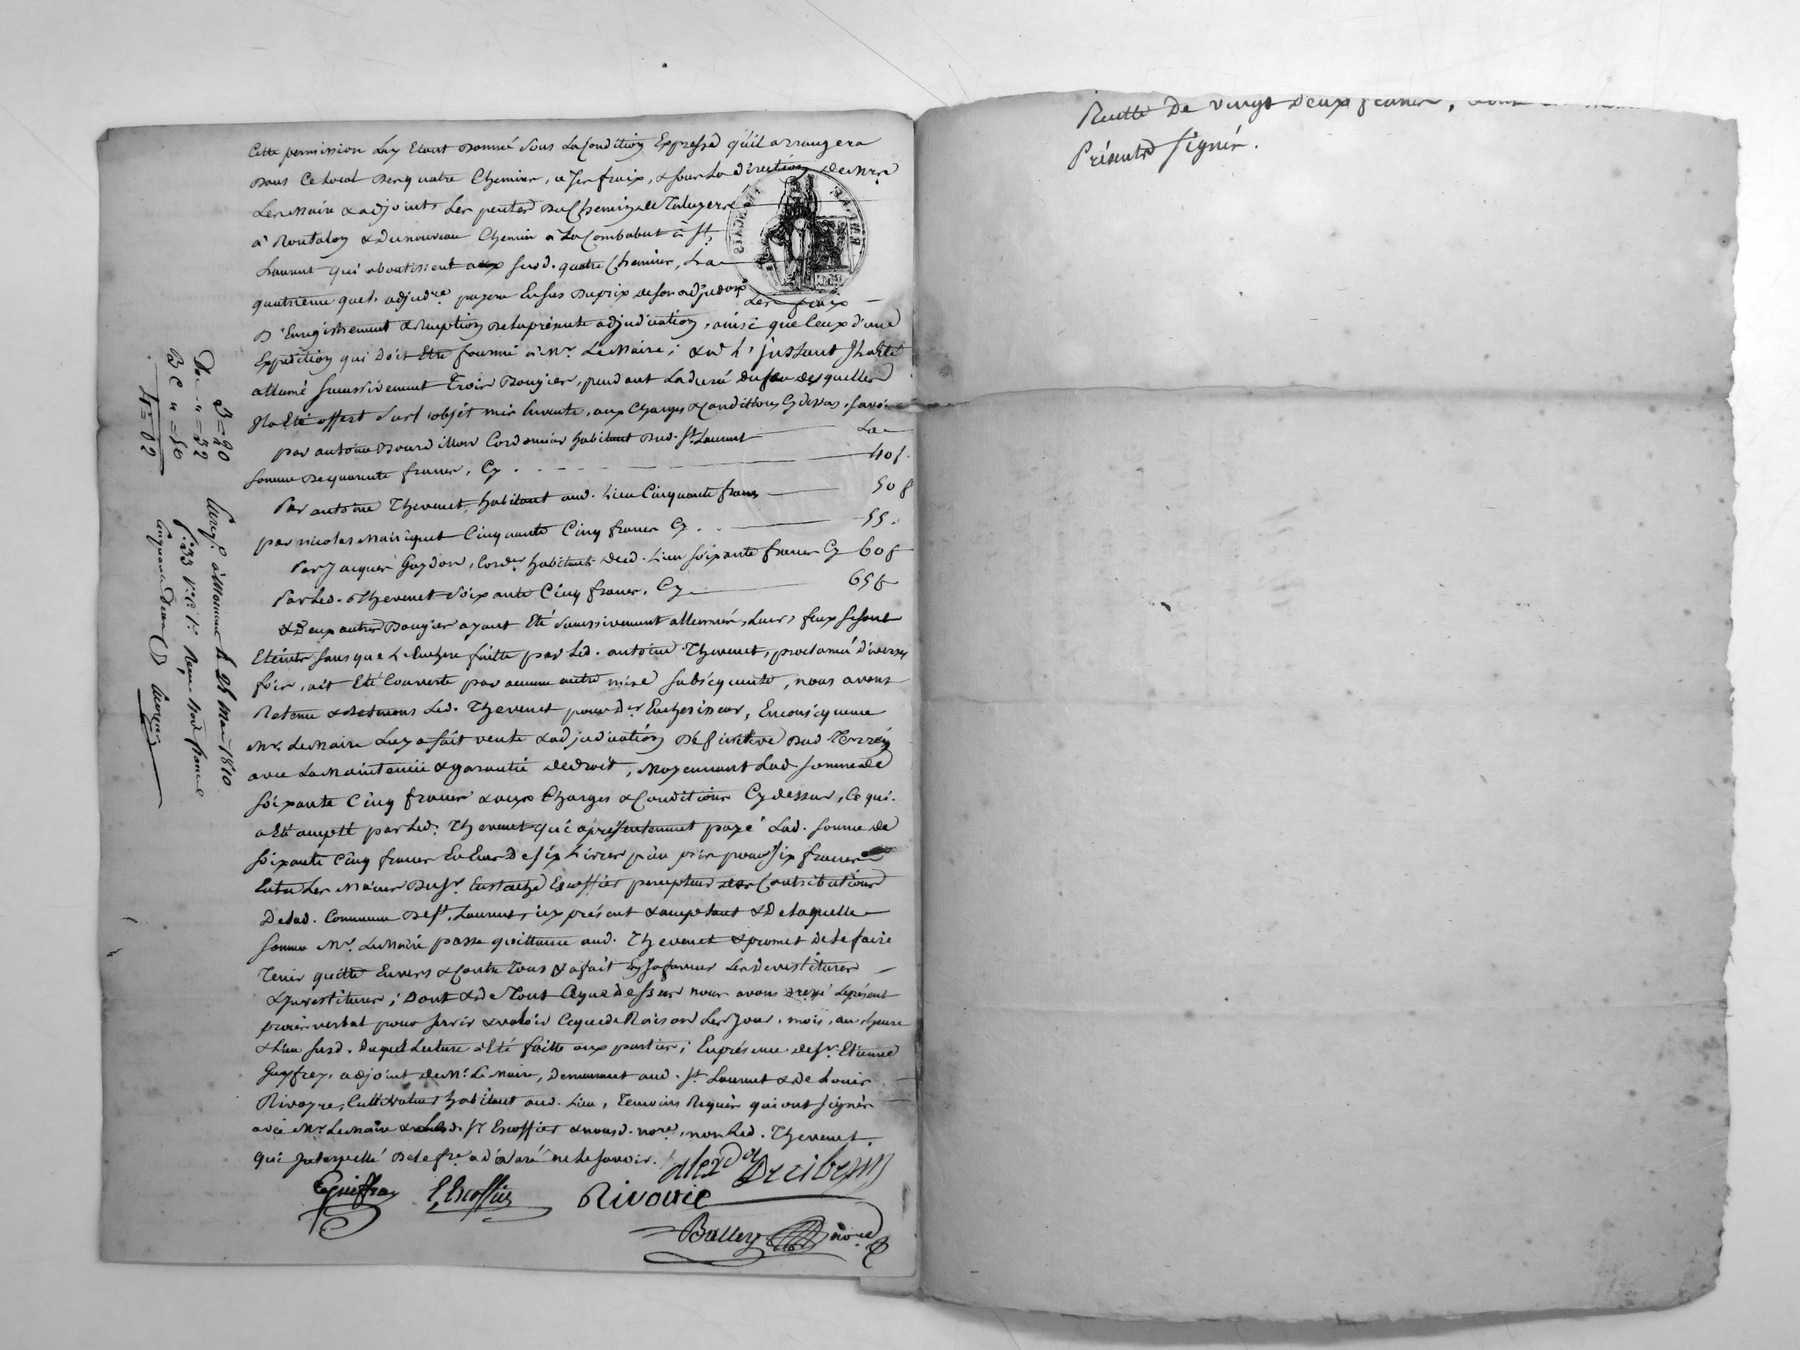 Cette permission Luy Etant Donnée Sous La Condition Expresse qu'il arrangera
Dans Ce Local Des quatre Chemins, a Ses fraix, & sous La direction de Mrs
Les Maire & adjoint, Les pentes Du Chemin de Taluyers
à Rontalon & Du nouveau Chemin à La Combabut à St
Laurent qui aboutissent aux susd. quatre Chemins, La
quatrieme que L'adjudre payera En sus Du prix de son adjudon Les fraix
D'Enregistrement & Reception De la présente adjudication, ainsi que Ceux d'une
Expédition qui Doit Etre fournie à Mr. Le Maire; & à L'instant Il a été
allumé Successivement Trois Bougies, pendant La durée du feu desquelles
Il a Eté offert Sur L'objet mis En vente, aux Charges & Conditions Cy dessus, Savoir
par antoine Bourdillon Cordonnier habitant Dud. St. Laurent La
Somme De quarante francs, Cy 40 f.
Par antoine Thevenet, habitant aud. Lieu Cinquante francs 50 f
par nicolas Cinquante Cinq francs Cy 55.
Par Jacques Guydon, Cordr habitant dud. Lieu Soixante francs Cy 60 f
Par Led. Thevenet Soixante Cinq francs, Cy 65 f
& Deux autres Bougies ayant Eté Successivement allumées, Leurs feux se sont
Eteints sans que L'Enchere faitte par Led. antoine Thevenet, proclamée diverses
fois, ait Eté Couverte par aucune autre mise Subsequente, nous avons
Retenu & Retenons Led. Thevenet pour Dr Encherisseur, En consequence
Mr. Le Maire Luy a fait vente & adjudication Définitive Dud Terrein
avec La Maintenüe & garantie de droit, Moyennant Lad somme de
Soixante Cinq francs & aux Charges & Conditions Cy dessus, Ce qui
a Eté accepté par Led. Thevenet qui a présentement payé Lad. Somme de
Soixante Cinq francs En Ecus De Six Livres pour Six francs
Entre Les Mains Du Sr. Eustache Escoffier percepteur des Contributions
De Lad. Commune De St. Laurent, icy présent & acceptant & De Laquelle
Somme Mr. Le Maire passe quittance aud. Thevenet & promet De Le faire
Tenir quitte Envers & Contre Tous & a fait En Sa faveur Les Devestitures
& Investitures; Dont & De Tout Ce que Dessus nous avons dressé Le présent
procès verbal pour servir & valoir Ce que de Raison Les Jour, mois, an, heure
& Lieu susd. Duquel Lecture a Eté faitte aux parties; En présence de Sr. Etienne
Guyffrey, adjoint de Mr. Le Maire, Demeurant aud. St. Laurent & De Louis
Rivoyre, Cultivateur habitant aud. Lieu, Temoins Requis qui ont Signés
avec Mr. Le Maire & Led. Sr Escoffier & nousd. nore, non Led. Thevenet,
qui Interpellé De Le fre a déclaré ne Le savoir.
Eguiffray E, Escoffier Rivoire
Balley nore
3 = 20
De = 32
= 50
4 = 02
Enreg. à Mornant Le 25 Mai 1810
f. 33 Vo. Reçu trois francs
cinquante deux
Reçûtte De vingt Deux fevrier,
Présente Signée.